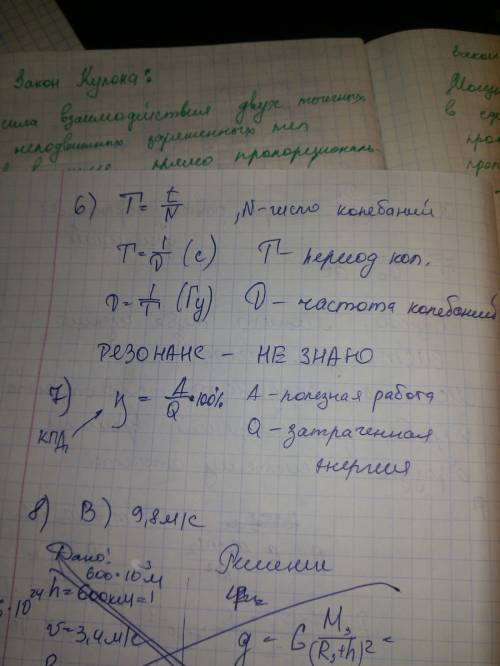 Закон Кулона:
сила взаимодействия двух точечных
неподвижных заряженных тел
прямо пропорциональ-
Закон
в
6) T = t/N , N - число колебаний
T = 1/ν (с) T - период кол.
ν = 1/T (Гц) ν - частота колебаний
РЕЗОНАНС - НЕ ЗНАЮ
7) η = A/Q · 100% A - полезная работа
КПД Q - затраченная
энергия
8) В) 9,8 м/с
Дано: Решение
600·10³м
h = 600км =
v = 3,4 м/с g = G Mз/(Rз+h)² =